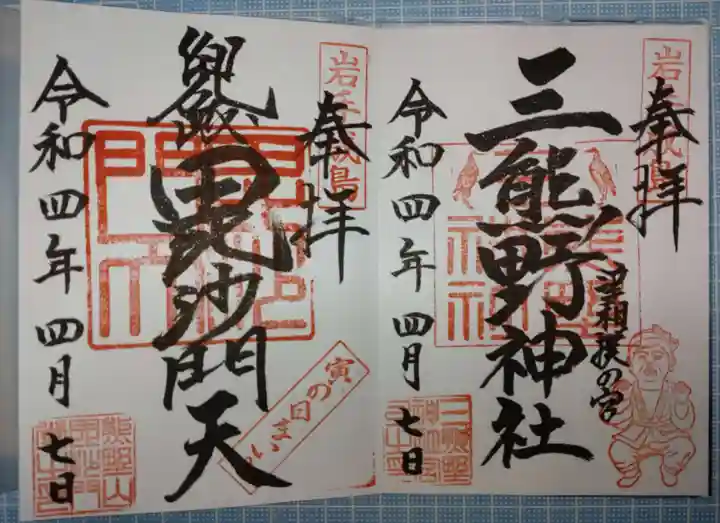 奉拝
岩手成島
三熊野神社
泣相撲の宮
令和四年四月七日
奉拝
岩手成島
兜跋毘沙門天
寅の日まいり
令和四年四月七日